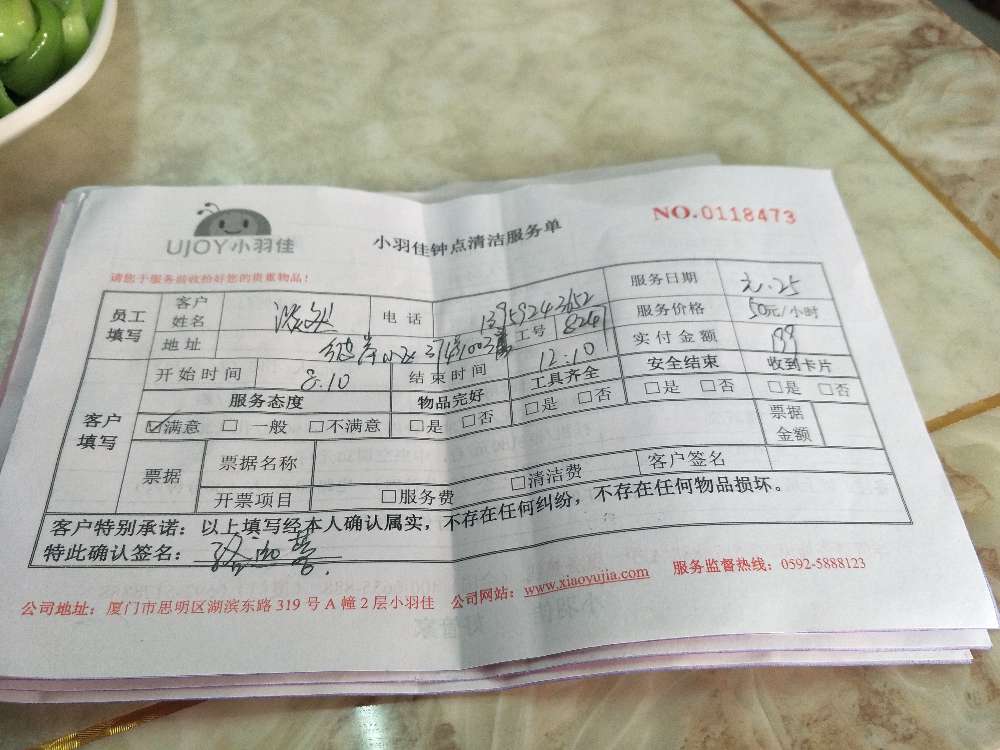 UJOY小羽佳
小羽佳钟点清洁服务单
NO.0118473
请您于服务前收拾好您的贵重物品!
员工填写 客户姓名 电话 13959243652 服务日期
地址 工号 8247 服务价格 50元/小时
实付金额
开始时间 8:10 结束时间 12:10
客户填写 服务态度 物品完好 工具齐全 安全结束 收到卡片
☑满意 □ 一般 □不满意 □是 □否 □是 □否 □是 □否 □是 □否
票据 票据名称 票据金额
开票项目 □服务费 □清洁费 客户签名
客户特别承诺:以上填写经本人确认属实,不存在任何纠纷,不存在任何物品损坏。
特此确认签名:
公司地址:厦门市思明区湖滨东路 319 号 A 幢 2 层小羽佳 公司网站:www.xiaoyujia.com 服务监督热线:0592-5888123